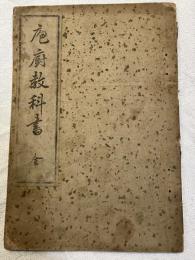 庖廚教科書 全